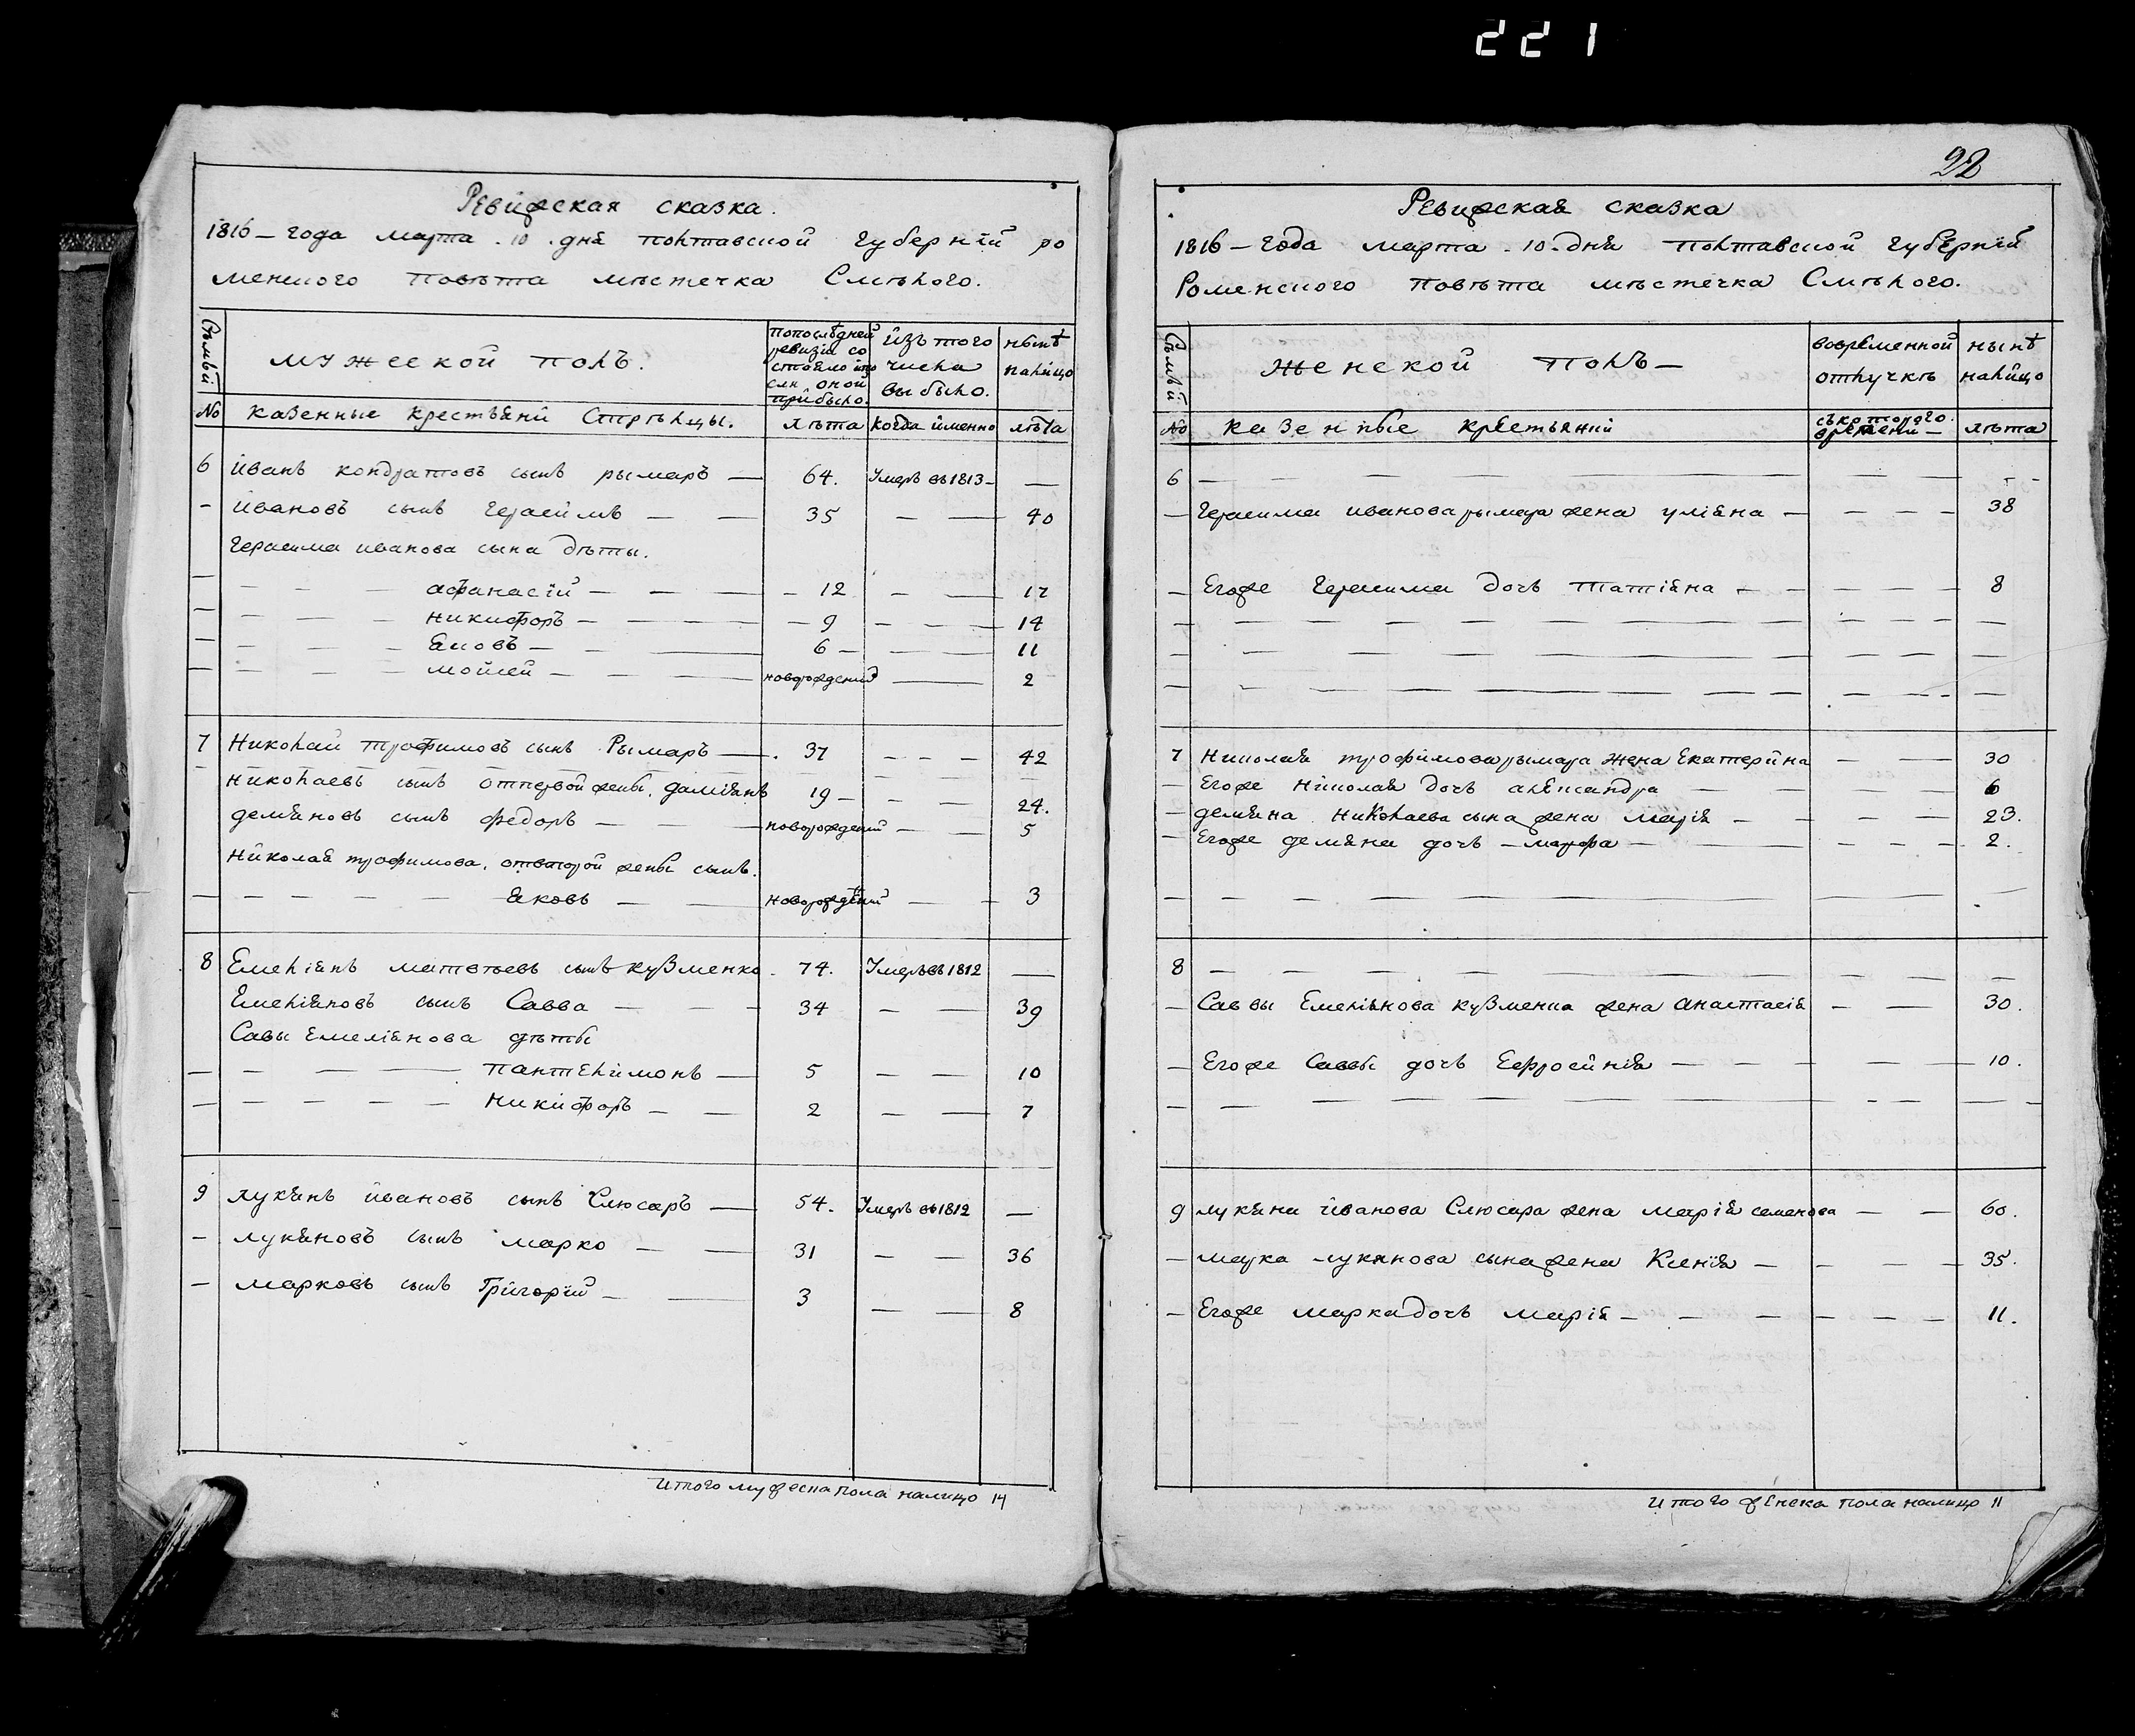 221
Ревизская сказка.
1816 – года марта . 10 . дня полтавской губерніи ро
менского повѣта мѣстечка Смѣлого.
Сѣмьи
мужеской полъ.
попослѣдней ревизіи состояло или
оной прибыло.
изъ того числа выбыло.
нынѣ налицо
№ казенные крестьяни Стрѣлцы. лѣта когда именно лѣта
6 иванъ кондратовъ сынъ рымаръ — 64. Умеръ въ 1813 – —
– ивановъ сынъ герасимъ — — 35 — — 40
герасима иванова сына дѣты.
— — — — афанасій — — — — 12 — — 17
— — — — никифоръ — — — — 9 — — — 14
— — — — яковъ — — — 6 — — 11
— — — — мойсей — — — новорожденний — 2
7 Николай трофимовъ сынъ Рымаръ —. 37 – – – 42
николаевъ сынъ отпервой жены, даміянъ 19 – – — 24.
демяновъ сынъ федоръ — — — новорожденій — — 5
николая трофимова, отвторой жены сынъ.
— — — — — — яковъ — — новорожденій — — 3
8 Емеліянъ матвѣевъ сынъ кузменко. 74. Умеръ въ 1812 —
Емеліяновъ сынъ Савва — — — 34 — — 39
Савы Емеліянова дѣты
— — — — пантелимонъ — 5 — — 10
— — — — — — никифоръ — — 2 — — 7
9 лукянъ ивановъ сынъ Слюсаръ — 54. Умеръ въ 1812 —
– лукяновъ сынъ марко — — 31 — — 36
– марковъ сынъ Григорій — — 3 — — 8
Итого мужеска пола налицо 14
22
Ревизская сказка
1816 – года марта . 10 . дня полтавской губерній
Роменского повѣта мѣстечка Смѣлого.
Сѣмьи
женской полъ —
вовременной отлучкѣ
нынѣ налицо
№ казенные крестьяний съкоторого времени – лѣта
6 — — — — — — — — — – -
— Герасима иванова рымара жена уліяна — — — — 38
— Егоже герасима дочь татіяна — — — — — 8
— — — — — — — — — — — —
— — — — — — — — — — —
— — — — — — — — — — — —
7 николая трофимова рымара жена Екатерина — — 30
— Егоже николая дочь александра — — — — — 6
— демяна николаева сына жена марія — — — — 23.
— Егоже демяна дочь – марфа — — — — — 2.
— — — — — — — — — —
8 — — — — — — — — — —
— Саввы Емеліянова кузменка жена анастасія — — 30.
— Егоже Саввы дочь Ефросинія — — — — — 10.
— — — — — — — — — — — —
9 лукяна иванова Слюсара жена марія семенова — — 60.
— марка лукянова сына жена Ксенія — — — — 35.
— Егоже марка дочь марія — — — — — — — 11.
Итого женска пола налицо 11